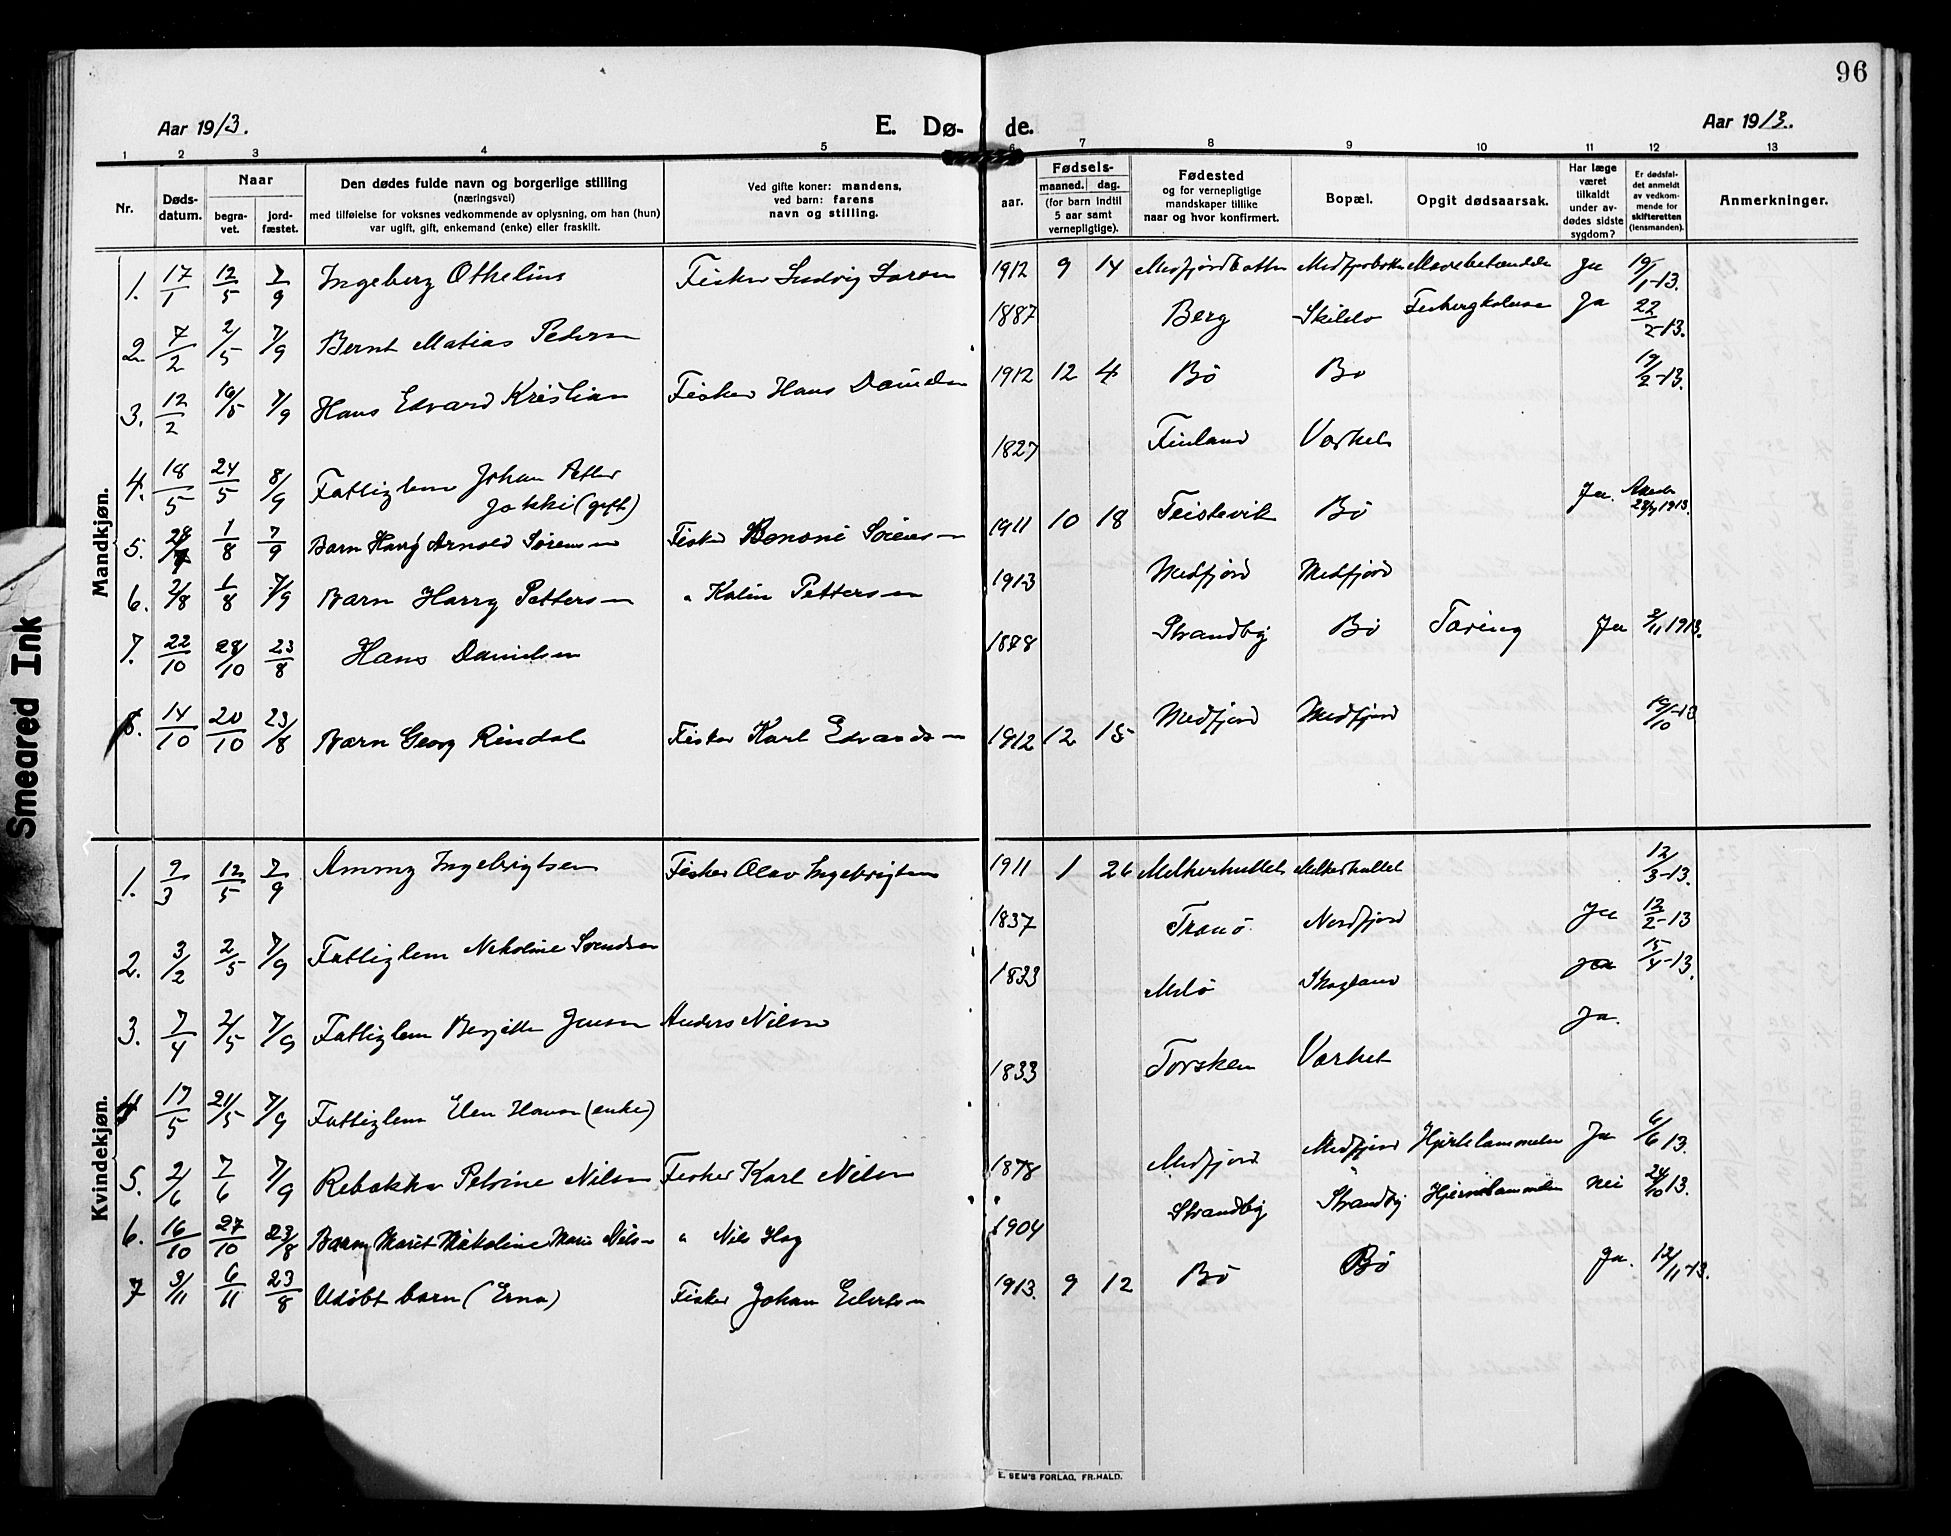 96
Aar 1913.
E. Dø-
de.
Aar 1913.
1 2 3 4 5 6 7 8 9 10 11 12 13
Nr.
Døds-
datum.
Naar
begra-
vet.
jord-
fæstet.
Den dødes fulde navn og borgerlige stilling
(næringsvei)
med tilføielse for voksnes vedkommende av oplysning, om han (hun)
var ugift, gift, enkemand (enke) eller fraskilt.
Ved gifte koner: mandens,
ved barn: farens
navn og stilling.
Fødsels-
aar.
maaned.
dag.
(for barn indtil
5 aar samt
vernepligtige).
Fødested
og for vernepligtige
mandskaper tillike
naar og hvor konfirmert.
Bopæl.
Opgit dødsaarsak.
Har læge
været
tilkaldt
under av-
dødes sidste
sygdom?
Er dødsfal-
det anmeldt
av vedkom-
mende for
skifteretten
(lensmanden).
Anmerkninger.
Mandkjøn.
1. 17/1 12/5 7/9 Ingeberg Othelius Fisker Ludvig Larsen 1912 9 14 Ja 19/1-13.
2. 7/2 2/5 7/9 Bernt Matias Pedersen 1887 Berg Ja 22/2-13.
3. 12/2 16/5 7/9 Hans Edvard Kristian Fisker Hans Danielsen 1912 12 4 Bö Bö 19/2-13.
4. 18/5 24/5 8/9 Fattiglem Johan Petter
Jokki (gift) 1827 Finland
5. 28/7 1/8 7/9 Barn Harry Arnold Sörensen Fisker Benoni Sörensen 1911 10 18 Teistevik Bö Ja. 1913.
6. 2/8 1/8 7/9 Barn Harry Pettersen " Kalin Pettersen 1913 Medfjord Medfjord
7. 22/10 28/10 23/8 Hans Danielsen 1878 Strandby Bö Tæring Ja 2/11 1913.
8. 14/10 20/10 23/8 Barn Georg Rindal Fisker Karl Edvardsen 1912 12 15 Medfjord Medfjord 19/10-13
Kvindekjøn.
1. 9/3 12/5 7/9 Ammy Ingebrigtsen Fisker Olav Ingebrigtsen 1911 1 26 12/3-13.
2. 3/2 2/5 7/9 Fattiglem Nikoline 1837 Tranö Nordfjord Ja 12/2-13
3. 7/4 2/5 7/9 Fattiglem Berjitte Jensen Anders Nilsen 1833 Melö Skogland Ja 15/4-13.
4 17/5 21/5 7/9 Fattiglem Elen Hansen (enke) 1833 Torsken Ja.
5. 2/6 7/6 7/9 Rebekka Petrine Nilsen Fisker Karl Nilsen 1878 Medfjord Medfjord Hjertelammelse Ja 6/6 13.
6. 16/10 27/10 23/8 Barn Marit Nikoline Marie Nilsen " Nils Hog 1904 Strandby Strandby Hjernelammelse nei 24/10 13.
7 3/11 6/11 23/8 Udöbt barn (Erna) Fisker Johan Eilertsen 1913. 9 12 Bö Bö Ja. 12/11-13.
E. SEM'S FORLAG, FR.HALD.
Smeared Ink